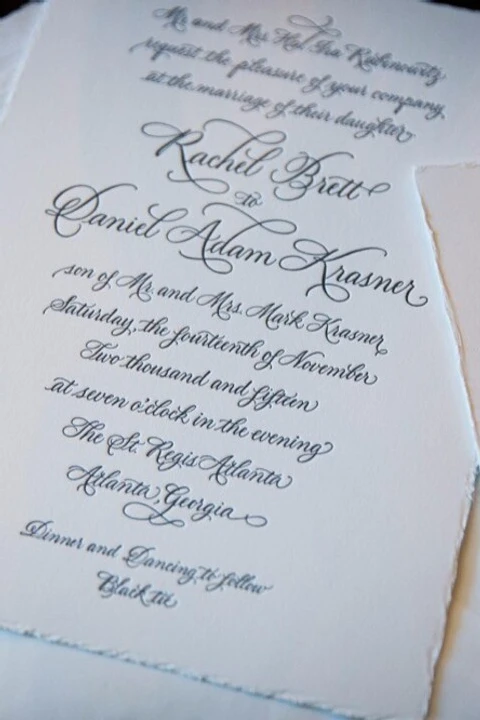 Mr. and Mrs. Hal Ira Rabinowitz
request the pleasure of your company
at the marriage of their daughter
Rachel Brett
to
Daniel Adam Krasner
son of Mr. and Mrs. Mark Krasner
Saturday, the fourteenth of November
Two thousand and fifteen
at seven o'clock in the evening
The St. Regis Atlanta
Atlanta, Georgia
Dinner and Dancing to follow
Black tie